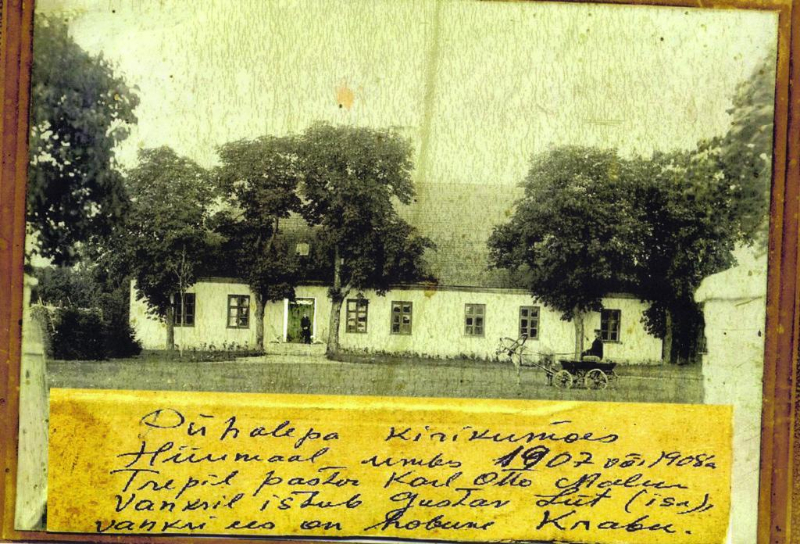 Pühalepa kirikumões
Hiiumaal umbes 1907 või 1908a
Trepil pastor Karl Otto
Vankril istub Gustav Lüt (isa),
vankri ees on hobune Krabu.